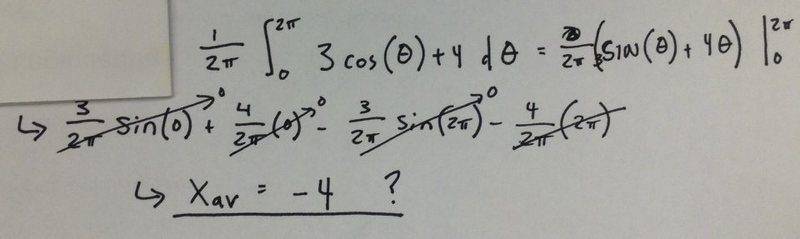 1/2π ∫₀^2π 3 cos(θ) + 4 dθ = /2π (3 sin(θ) + 4θ) |₀^2π
↳ 3/2π sin(0) →0 + 4/2π (0) →0 - 3/2π sin(2π) →0 - 4/2π (2π)
↳ Xav = -4 ?